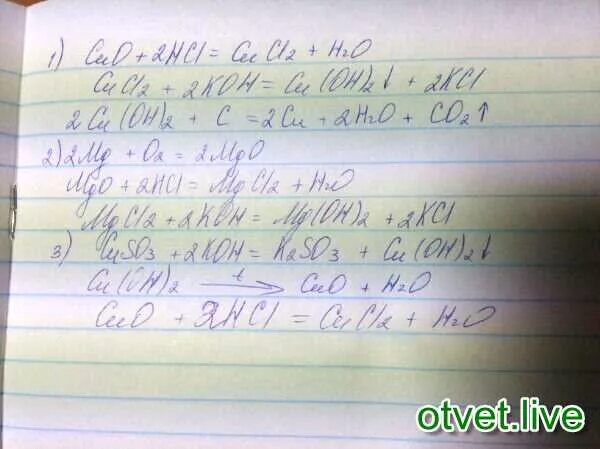 1) CuO + 2HCl = CuCl2 + H2O
CuCl2 + 2KOH = Cu(OH)2↓ + 2KCl
2Cu(OH)2 + C = 2Cu + 2H2O + CO2↑
2) 2Mg + O2 = 2MgO
MgO + 2HCl = MgCl2 + H2O
MgCl2 + 2KOH = Mg(OH)2 + 2KCl
3) CuSO3 + 2KOH = K2SO3 + Cu(OH)2↓
Cu(OH)2 t→ CuO + H2O
CuO + 2HCl = CuCl2 + H2O
otvet.live